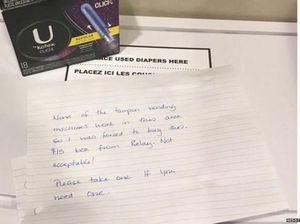 CLICK
U
by Kotex
CLICK
REGULAR
18
PLACE USED DIAPERS HERE
PLACEZ ICI LES
None of the tampon vending
machines work in this area
so I was forced to buy this
$15 box from Relay. Not
acceptable!
Please take one if you
need one.